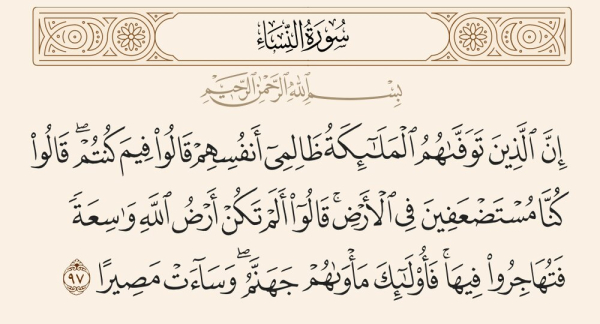 سُورَةُ النِّسَاءِ
بِسْمِ اللَّهِ الرَّحْمَٰنِ الرَّحِيمِ
إِنَّ ٱلَّذِينَ تَوَفَّىٰهُمُ ٱلْمَلَـٰٓئِكَةُ ظَالِمِىٓ أَنفُسِهِمْ قَالُوا۟ فِيمَ كُنتُمْ ۖ قَالُوا۟
كُنَّا مُسْتَضْعَفِينَ فِى ٱلْأَرْضِ ۚ قَالُوٓا۟ أَلَمْ تَكُنْ أَرْضُ ٱللَّهِ وَٰسِعَةً
فَتُهَاجِرُوا۟ فِيهَا ۚ فَأُو۟لَـٰٓئِكَ مَأْوَىٰهُمْ جَهَنَّمُ ۖ وَسَآءَتْ مَصِيرًا ٩٧